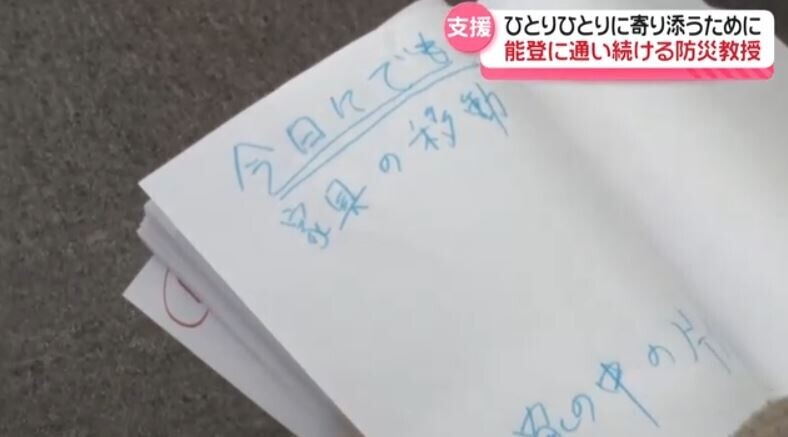 支援
ひとりひとりに寄り添うために
能登に通い続ける防災教授
今日にでも
家具の移動
の中の片